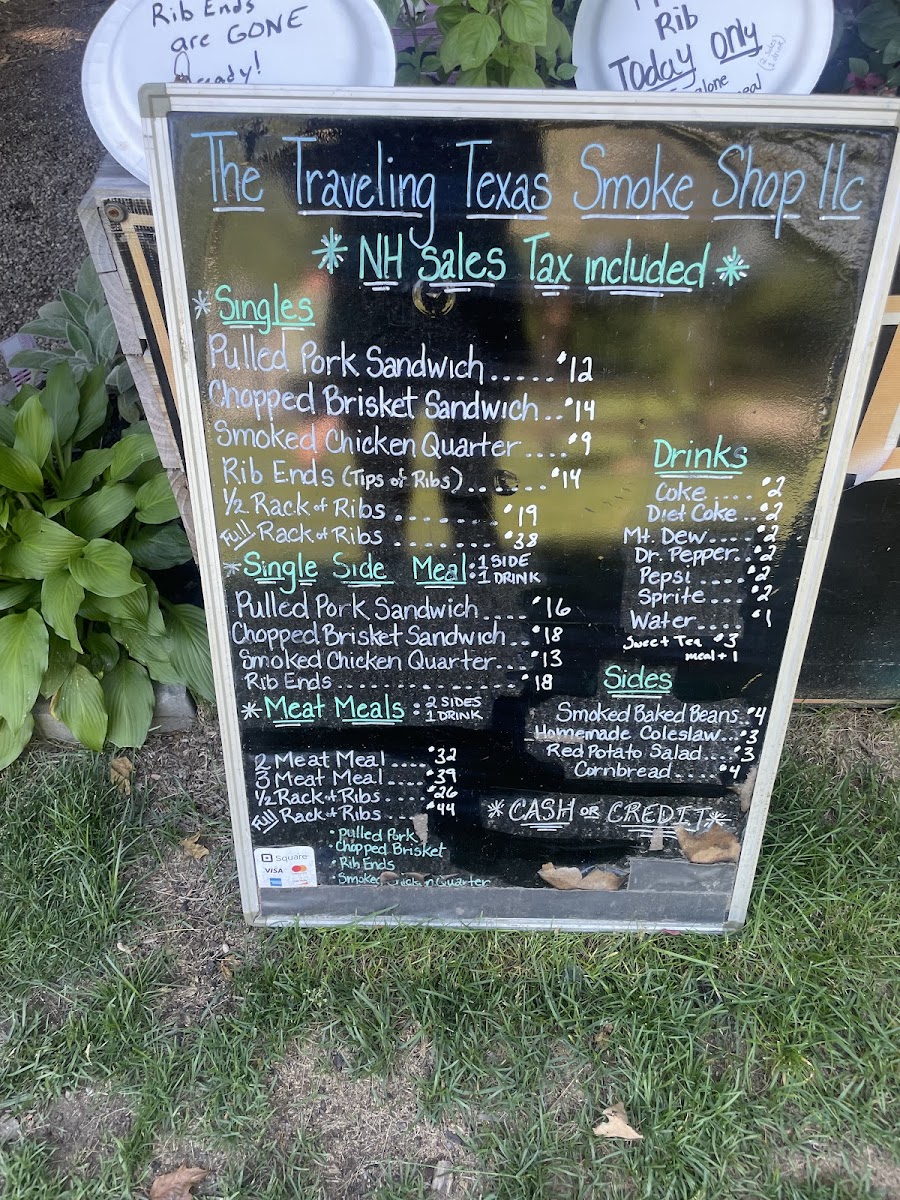 Rib Ends
are GONE
Already!
Rib
Today Only
alone
The Traveling Texas Smoke Shop llc
* NH Sales Tax included *
* Singles
Pulled Pork Sandwich ..... $12
Chopped Brisket Sandwich... $14
Smoked Chicken Quarter .... $9
Rib Ends (Tips of Ribs) ....... $14
1/2 Rack of Ribs ........ $19
Full Rack of Ribs ........ $38
* Single Side Meal: 1 SIDE
: 1 DRINK
Pulled Pork Sandwich ..... $16
Chopped Brisket Sandwich ... $18
Smoked Chicken Quarter.... $13
Rib Ends .................. $18
* Meat Meals : 2 SIDES
1 DRINK
2 Meat Meal .... $32
3 Meat Meal .... $39
1/2 Rack of Ribs .... $26
Full Rack of Ribs .... $44
• Pulled Pork
• Chopped Brisket
• Rib Ends
• Smoked Chicken Quarter
Square
VISA
Drinks
Coke .... $2
Diet Coke .. $2
Mt. Dew..... $2
Dr. Pepper.. $2
Pepsi ..... $2
Sprite.... $2
Water.... $1
Sweet Tea $3
meal + 1
Sides
Smoked Baked Beans.. $4
Homemade Coleslaw... $3
Red Potato Salad .... $3
Cornbread ..... $4
* CASH OR CREDIT *